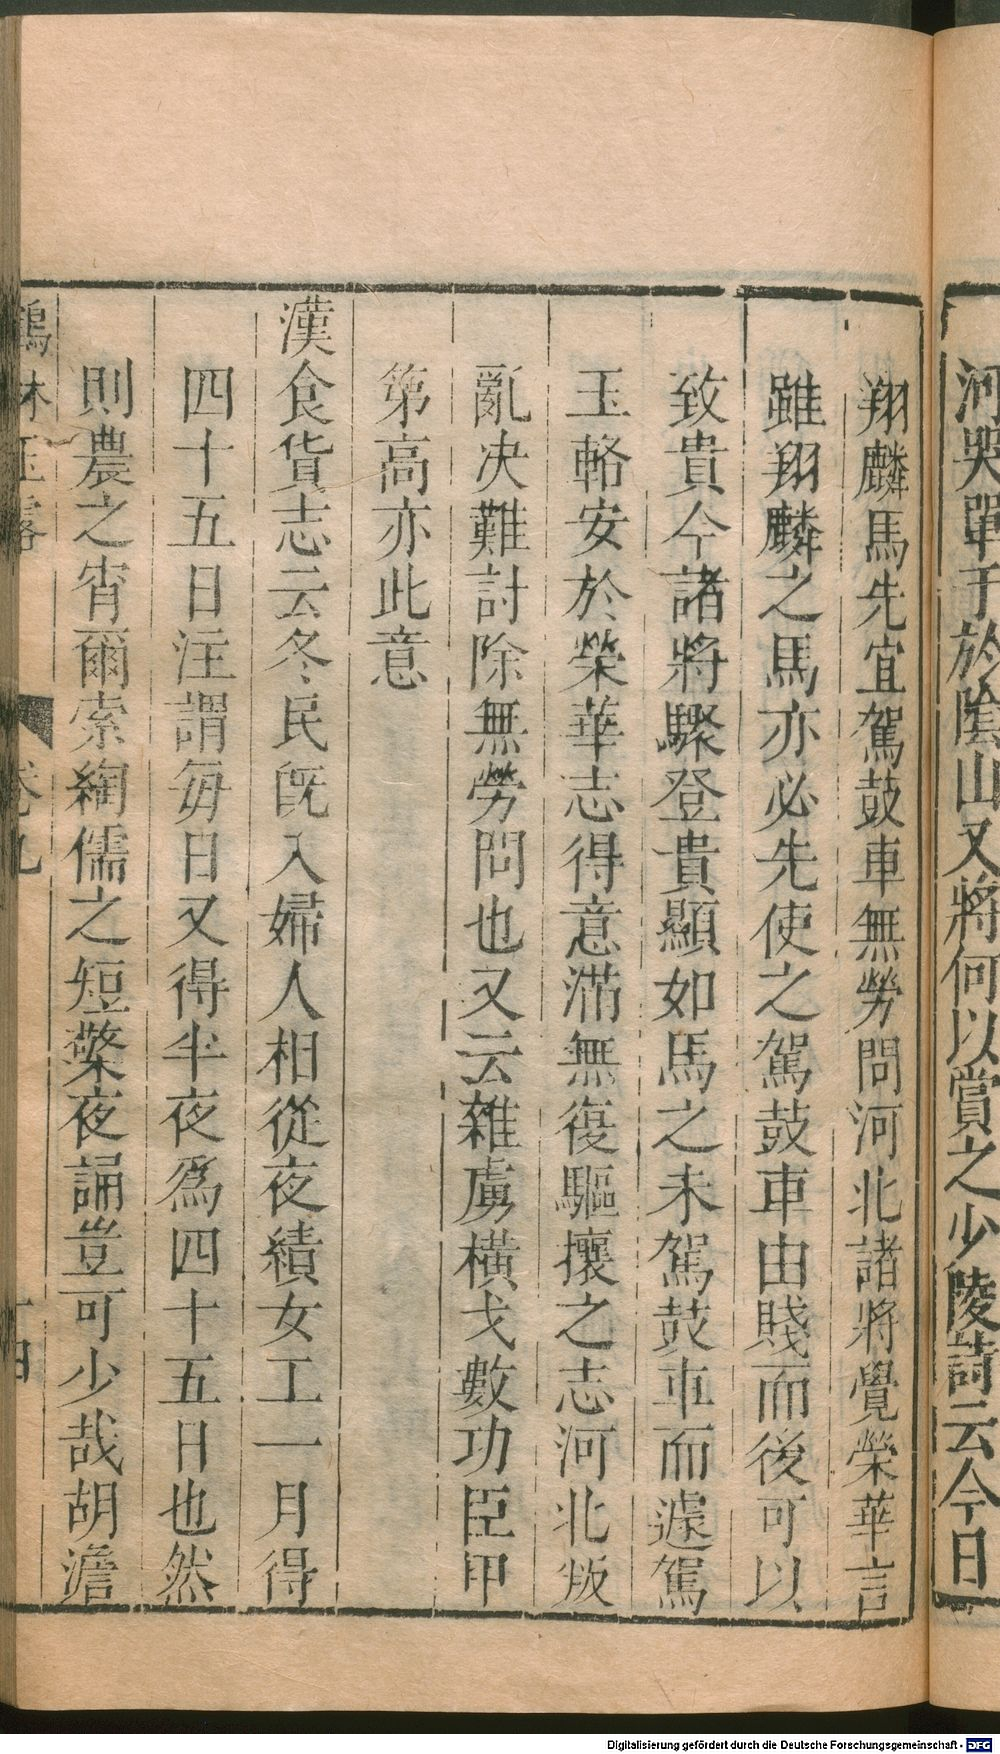 河哭單于於陰山又將何以賞之少陵詩云今日
翔麟馬先宜駕鼓車無勞問河北諸將覺榮華言
雖翔麟之馬亦必先使之駕鼓車由賤而後可以
致貴今諸將驟登貴顯如馬之未駕鼓車而遽駕
玉輅安於榮華志得意滿無復驅攘之志河北叛
亂决難討除無勞問也又云雜虜橫戈數功臣甲
第高亦此意
漢食貨志云冬民既入婦人相從夜績女工一月得
四十五日注謂每日又得半夜爲四十五日也然
則農之宵爾索綯儒之短檠夜誦豈可少哉胡澹
鶴林玉露 卷九 十四
Digitalisierung gefördert durch die Deutsche Forschungsgemeinschaft - DFG